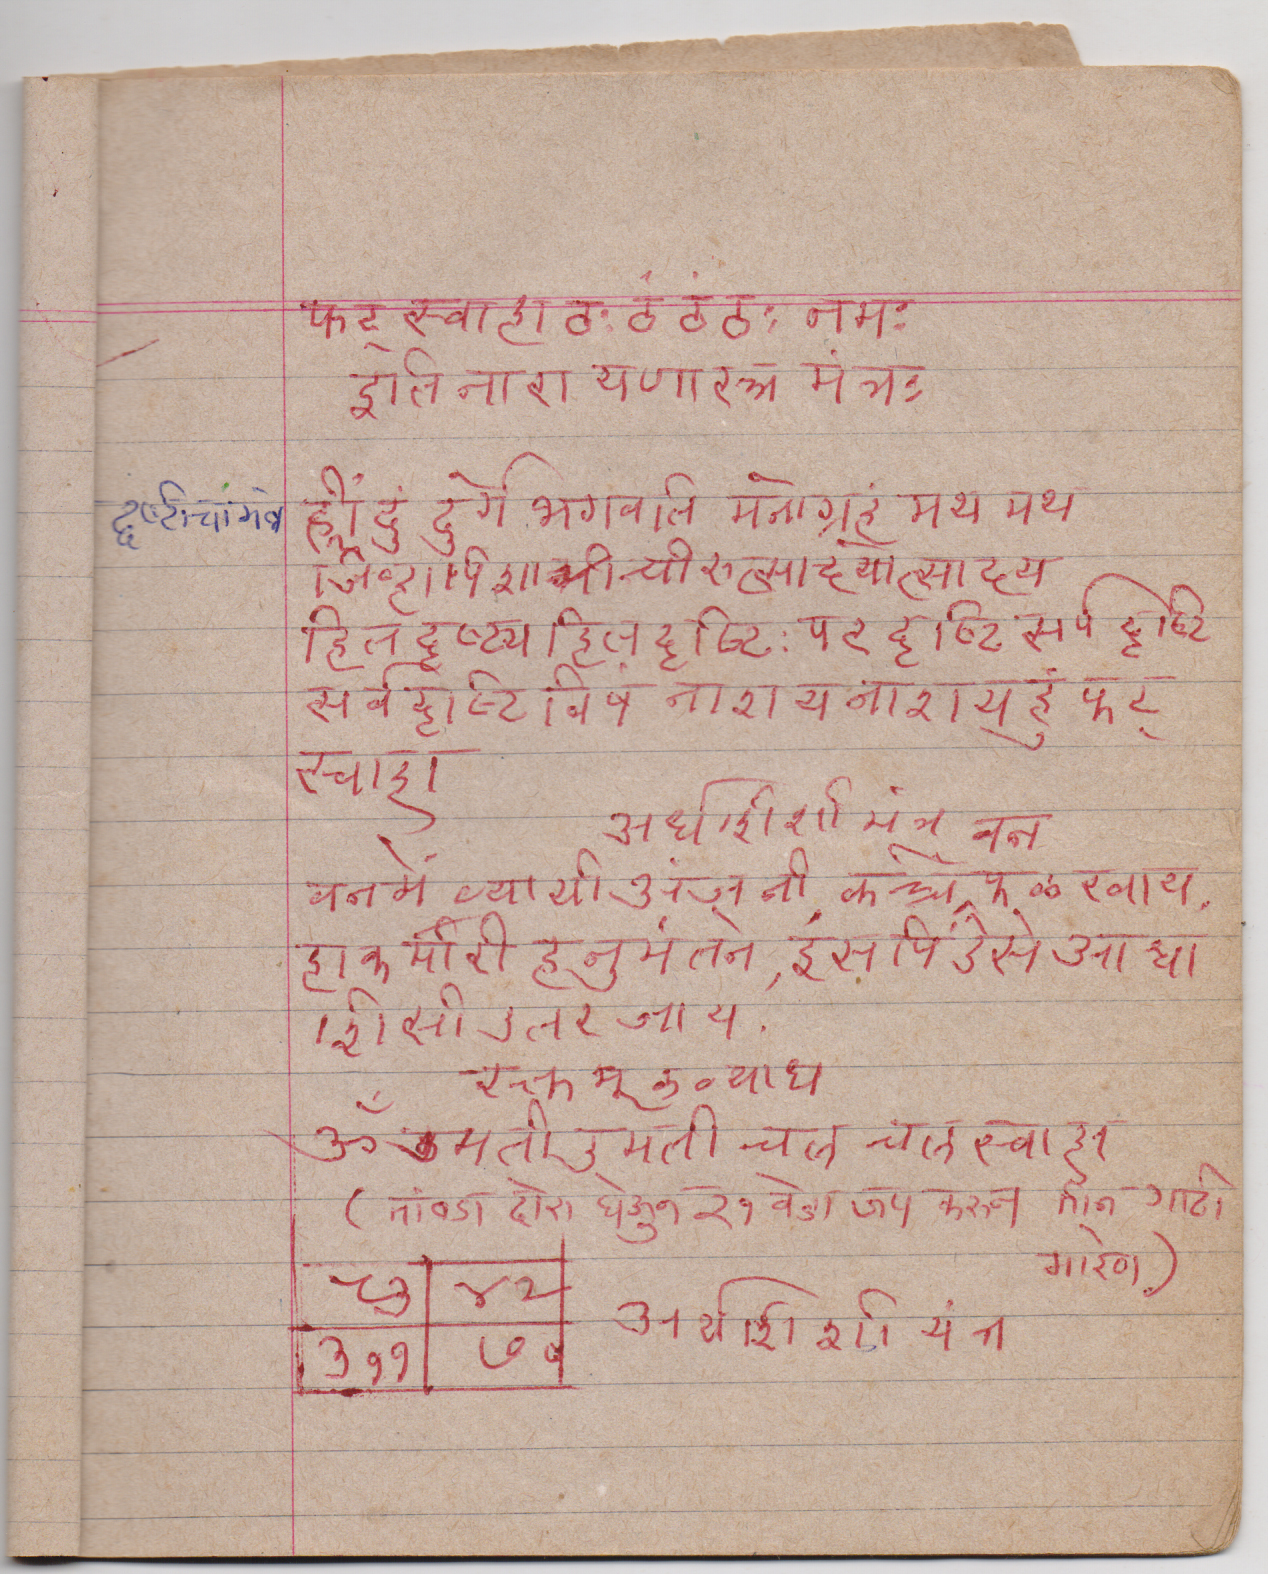 फट् स्वाहा ठः ठं ठं ठः नमः
इति नारायणास्त्र मंत्रः
दृष्टीचा मंत्र
ह्रीं दुं दुर्गे भगवति मनोग्रहं मथ मथ
जिव्हापिशाचीरुत्सादयोत्सादय
हितदृष्ट्याहितदृष्टिः परदृष्टि सर्पदृष्टि
सर्वदृष्टिविषं नाशय नाशय हुं फट्
स्वाहा
अर्धशिशी मंत्र वन
वनमें व्यायी अंजनी, कच्चे फळ खाय.
हाक मारी हनुमंतने, इस पिंडेसे आधा
शिसी उतर जाय.
रक्त मूळव्याध
ॐ उमती उमती चल चल स्वाहा
(तांबडा दोरा घेऊन २१ वेळा जप करून तीन गाठी
माराव्या.)
४२
३११ ७०
अर्धशिशी यंत्र